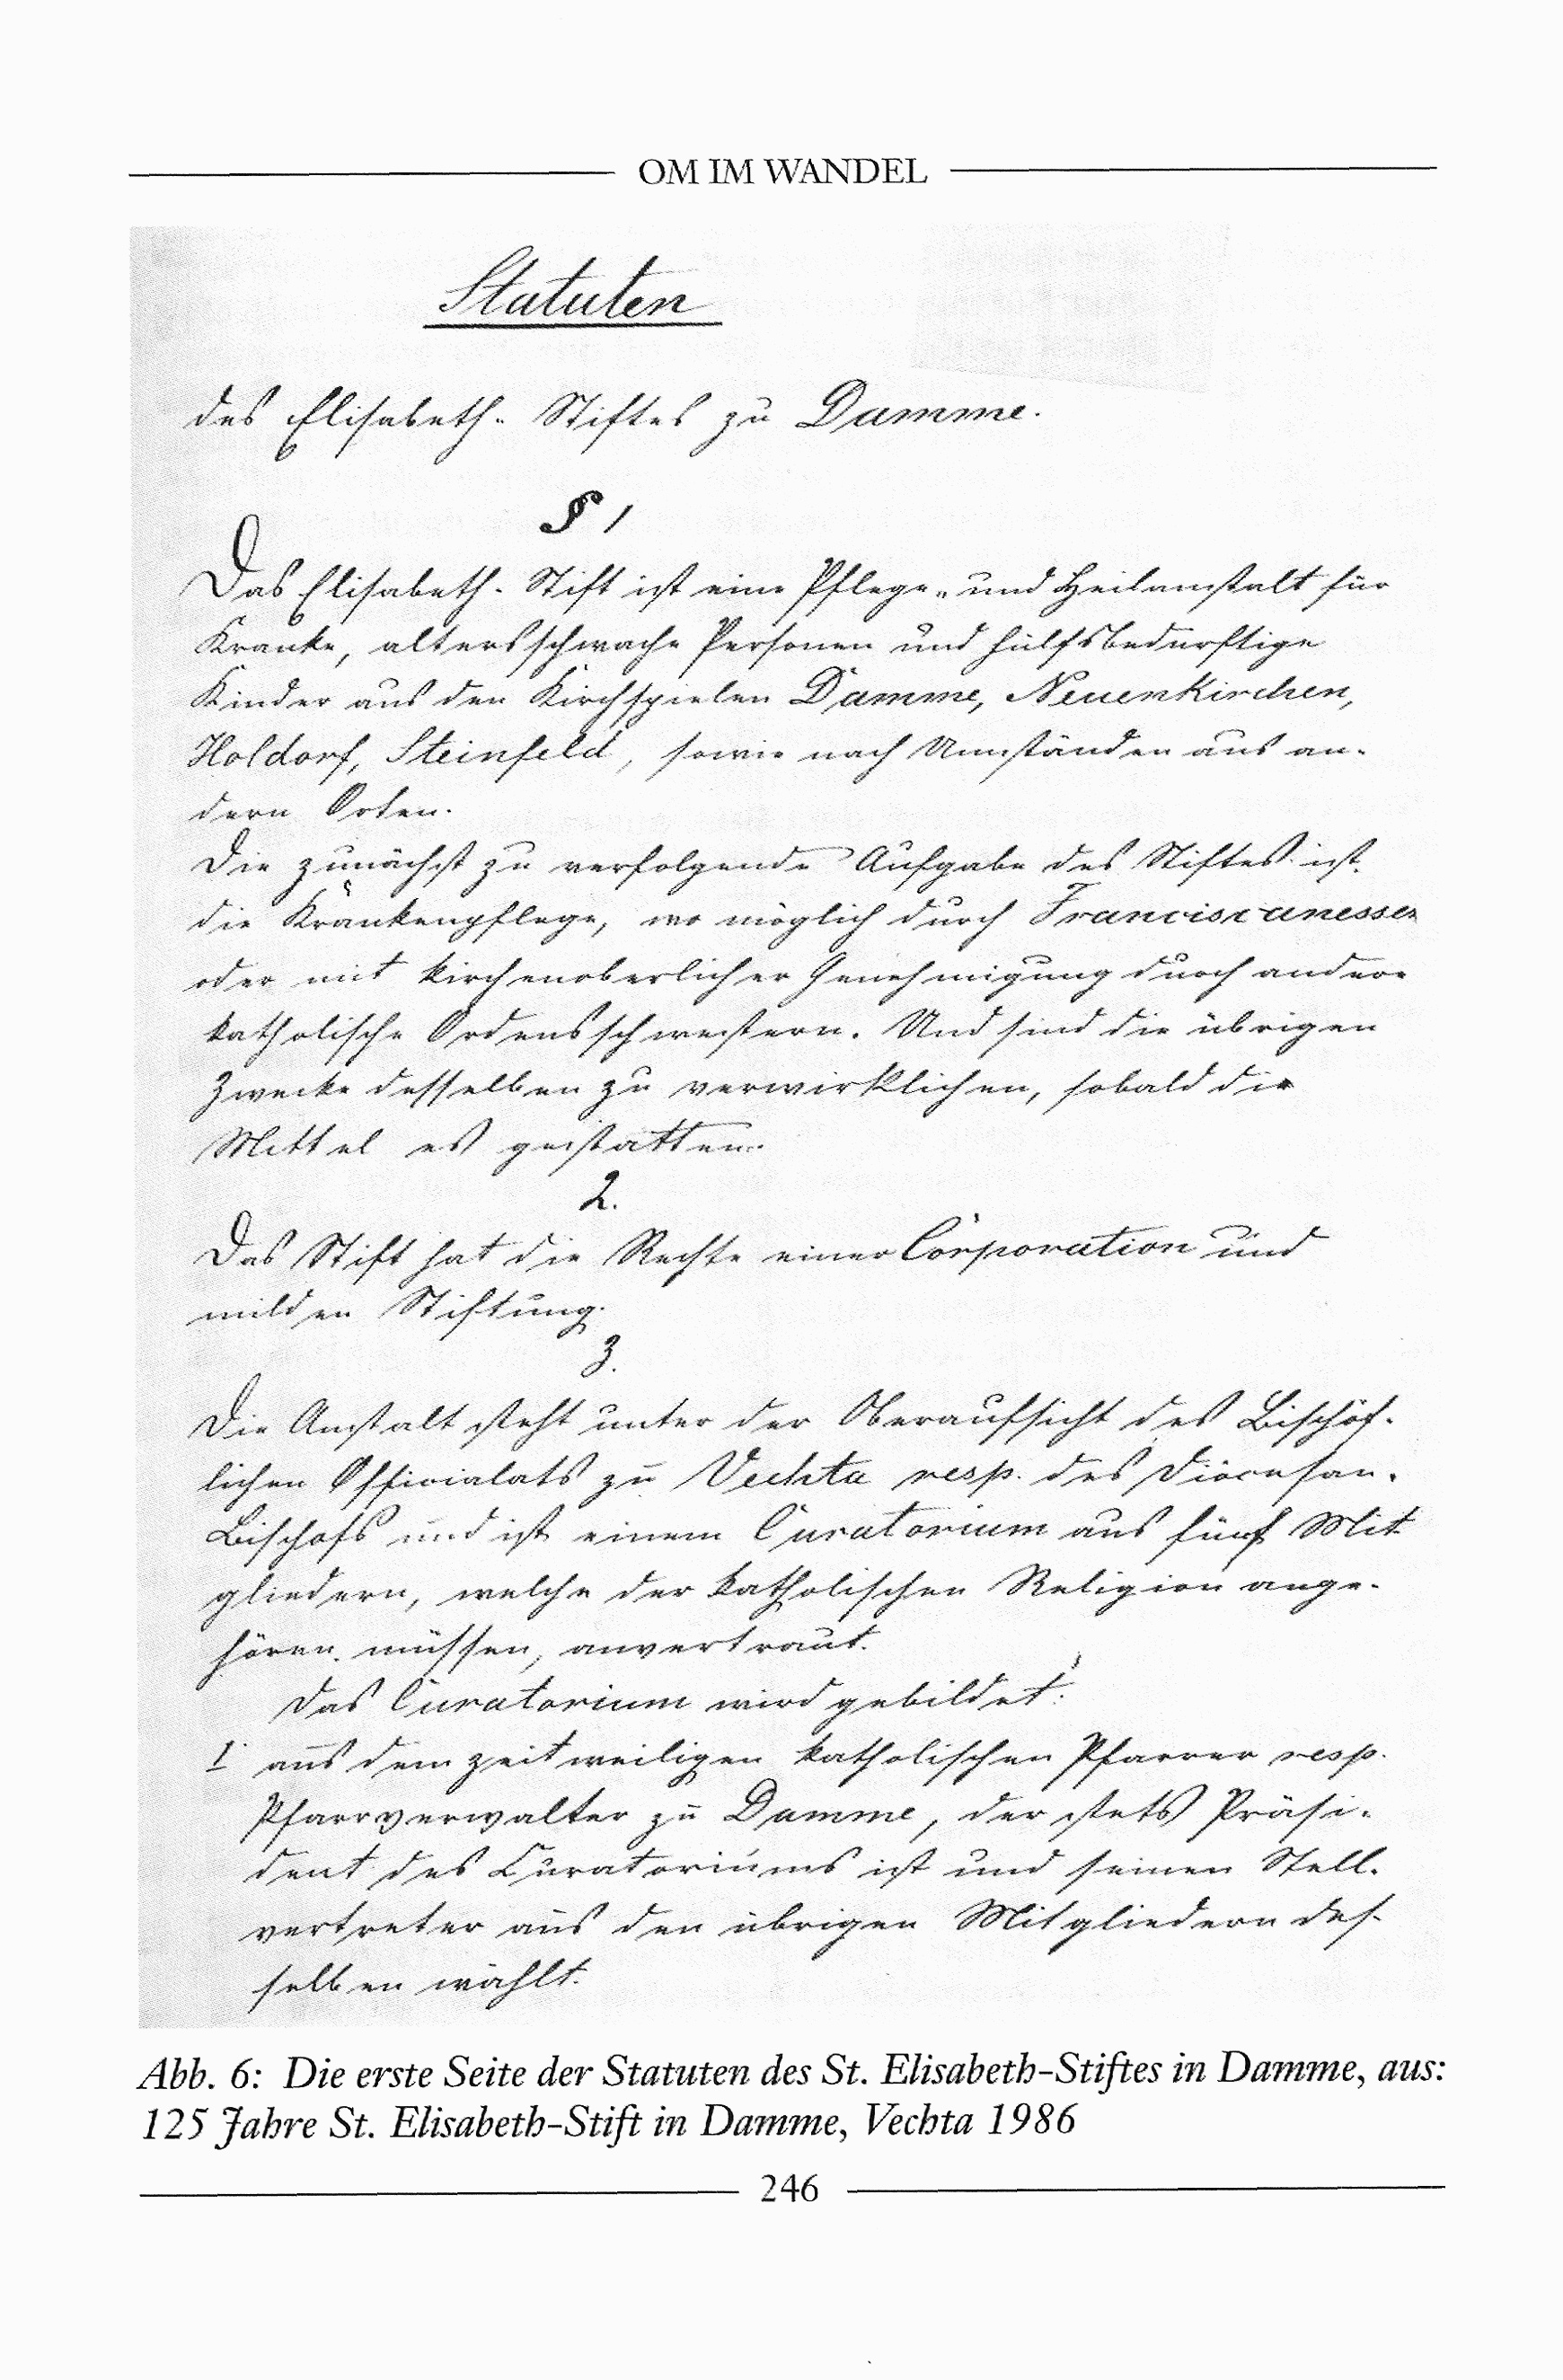 OM IM WANDEL
Statuten
des Elisabeth-Stiftes zu Damme.
§ 1
Das Elisabeth-Stift ist eine Pflege- und Heilanstalt für
Kranke, altersschwache Personen und hülfsbedürftige
Kinder aus den Kirchspielen Damme, Neuenkirchen,
Holdorf, Steinfeld, sowie nach Umständen aus an-
dern Orten.
Die zunächst zu verfolgende Aufgabe des Stiftes ist
die Krankenpflege, wo möglich durch Franciscanessen
oder mit kirchenoberlicher Genehmigung durch andere
katholische Ordensschwestern. Und sind die übrigen
Zwecke desselben zu verwirklichen, sobald die
Mittel es gestatten.
2.
Das Stift hat die Rechte einer Corporation und
milden Stiftung.
3.
Die Anstalt steht unter der Oberaufsicht des Bischöf-
lichen Officialats zu Vechta resp. des Diöcesan-
Bischofs und ist einem Curatorium aus fünf Mit-
gliedern, welche der katholischen Religion ange-
hören müssen, anvertraut.
Das Curatorium wird gebildet:
1 aus dem zeitweiligen katholischen Pfarrer resp.
Pfarrverwalter zu Damme, der stets Präsi-
dent des Curatoriums ist und seinen Stell-
vertreter aus den übrigen Mitgliedern des-
selben wählt.
Abb. 6: Die erste Seite der Statuten des St. Elisabeth-Stiftes in Damme, aus:
125 Jahre St. Elisabeth-Stift in Damme, Vechta 1986
246